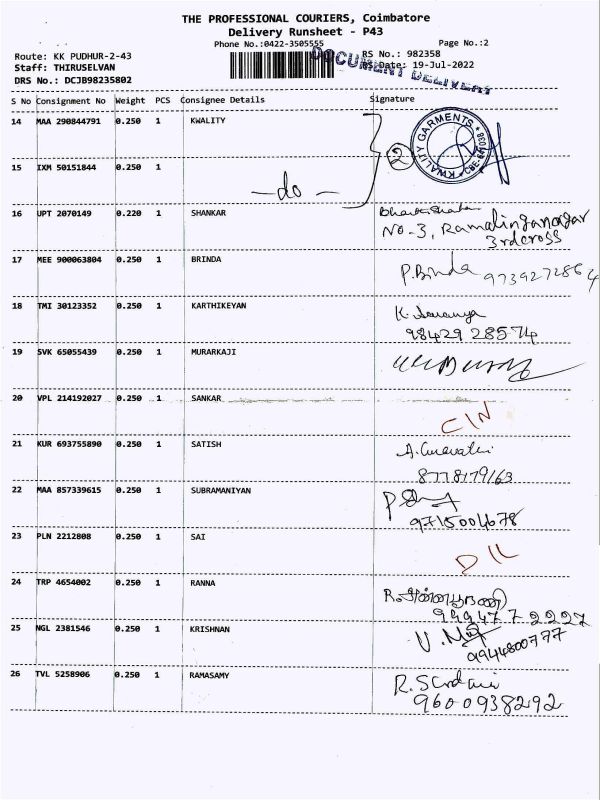 THE PROFESSIONAL COURIERS, Coimbatore
Delivery Runsheet - P43
Phone No.:0422-3505555 Page No.:2
Route: KK PUDHUR-2-43 RS No.: 982358
Staff: THIRUSELVAN RS Date: 19-Jul-2022
DRS No.: DCJB98235802
DOCUMENT DELIVERY
S No Consignment No Weight PCS Consignee Details Signature
14 MAA 290844791 0.250 1 KWALITY
KWALITY GARMENTS
2
15 IXM 50151844 0.250 1
- do -
16 UPT 2070149 0.220 1 SHANKAR
No-3, Ramalinganagar
3rd cross
17 MEE 900063804 0.250 1 BRINDA P.Binda 9739272864
18 TMI 30123352 0.250 1 KARTHIKEYAN K. Saranya
98429 28574
19 SVK 65055439 0.250 1 MURARKAJI
20 VPL 214192027 0.250 1 SANKAR
21 KUR 693755890 0.250 1 SATISH
8778179163
22 MAA 857339615 0.250 1 SUBRAMANIYAN
9715004678
23 PLN 2212808 0.250 1 SAI
24 TRP 4654002 0.250 1 RANNA
99947 7 2227
25 NGL 2381546 0.250 1 KRISHNAN
9944800777
26 TVL 5258906 0.250 1 RAMASAMY
9600938292